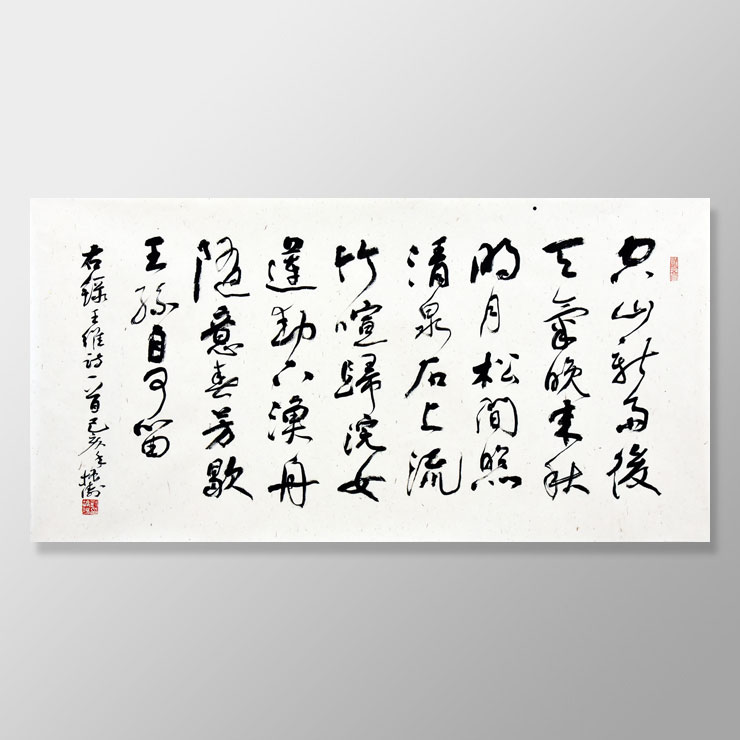 空山新雨後
天氣晚來秋
明月松間照
清泉石上流
竹喧歸浣女
蓮動下漁舟
隨意春芳歇
王孫自可留
右錄王維詩一首己亥年